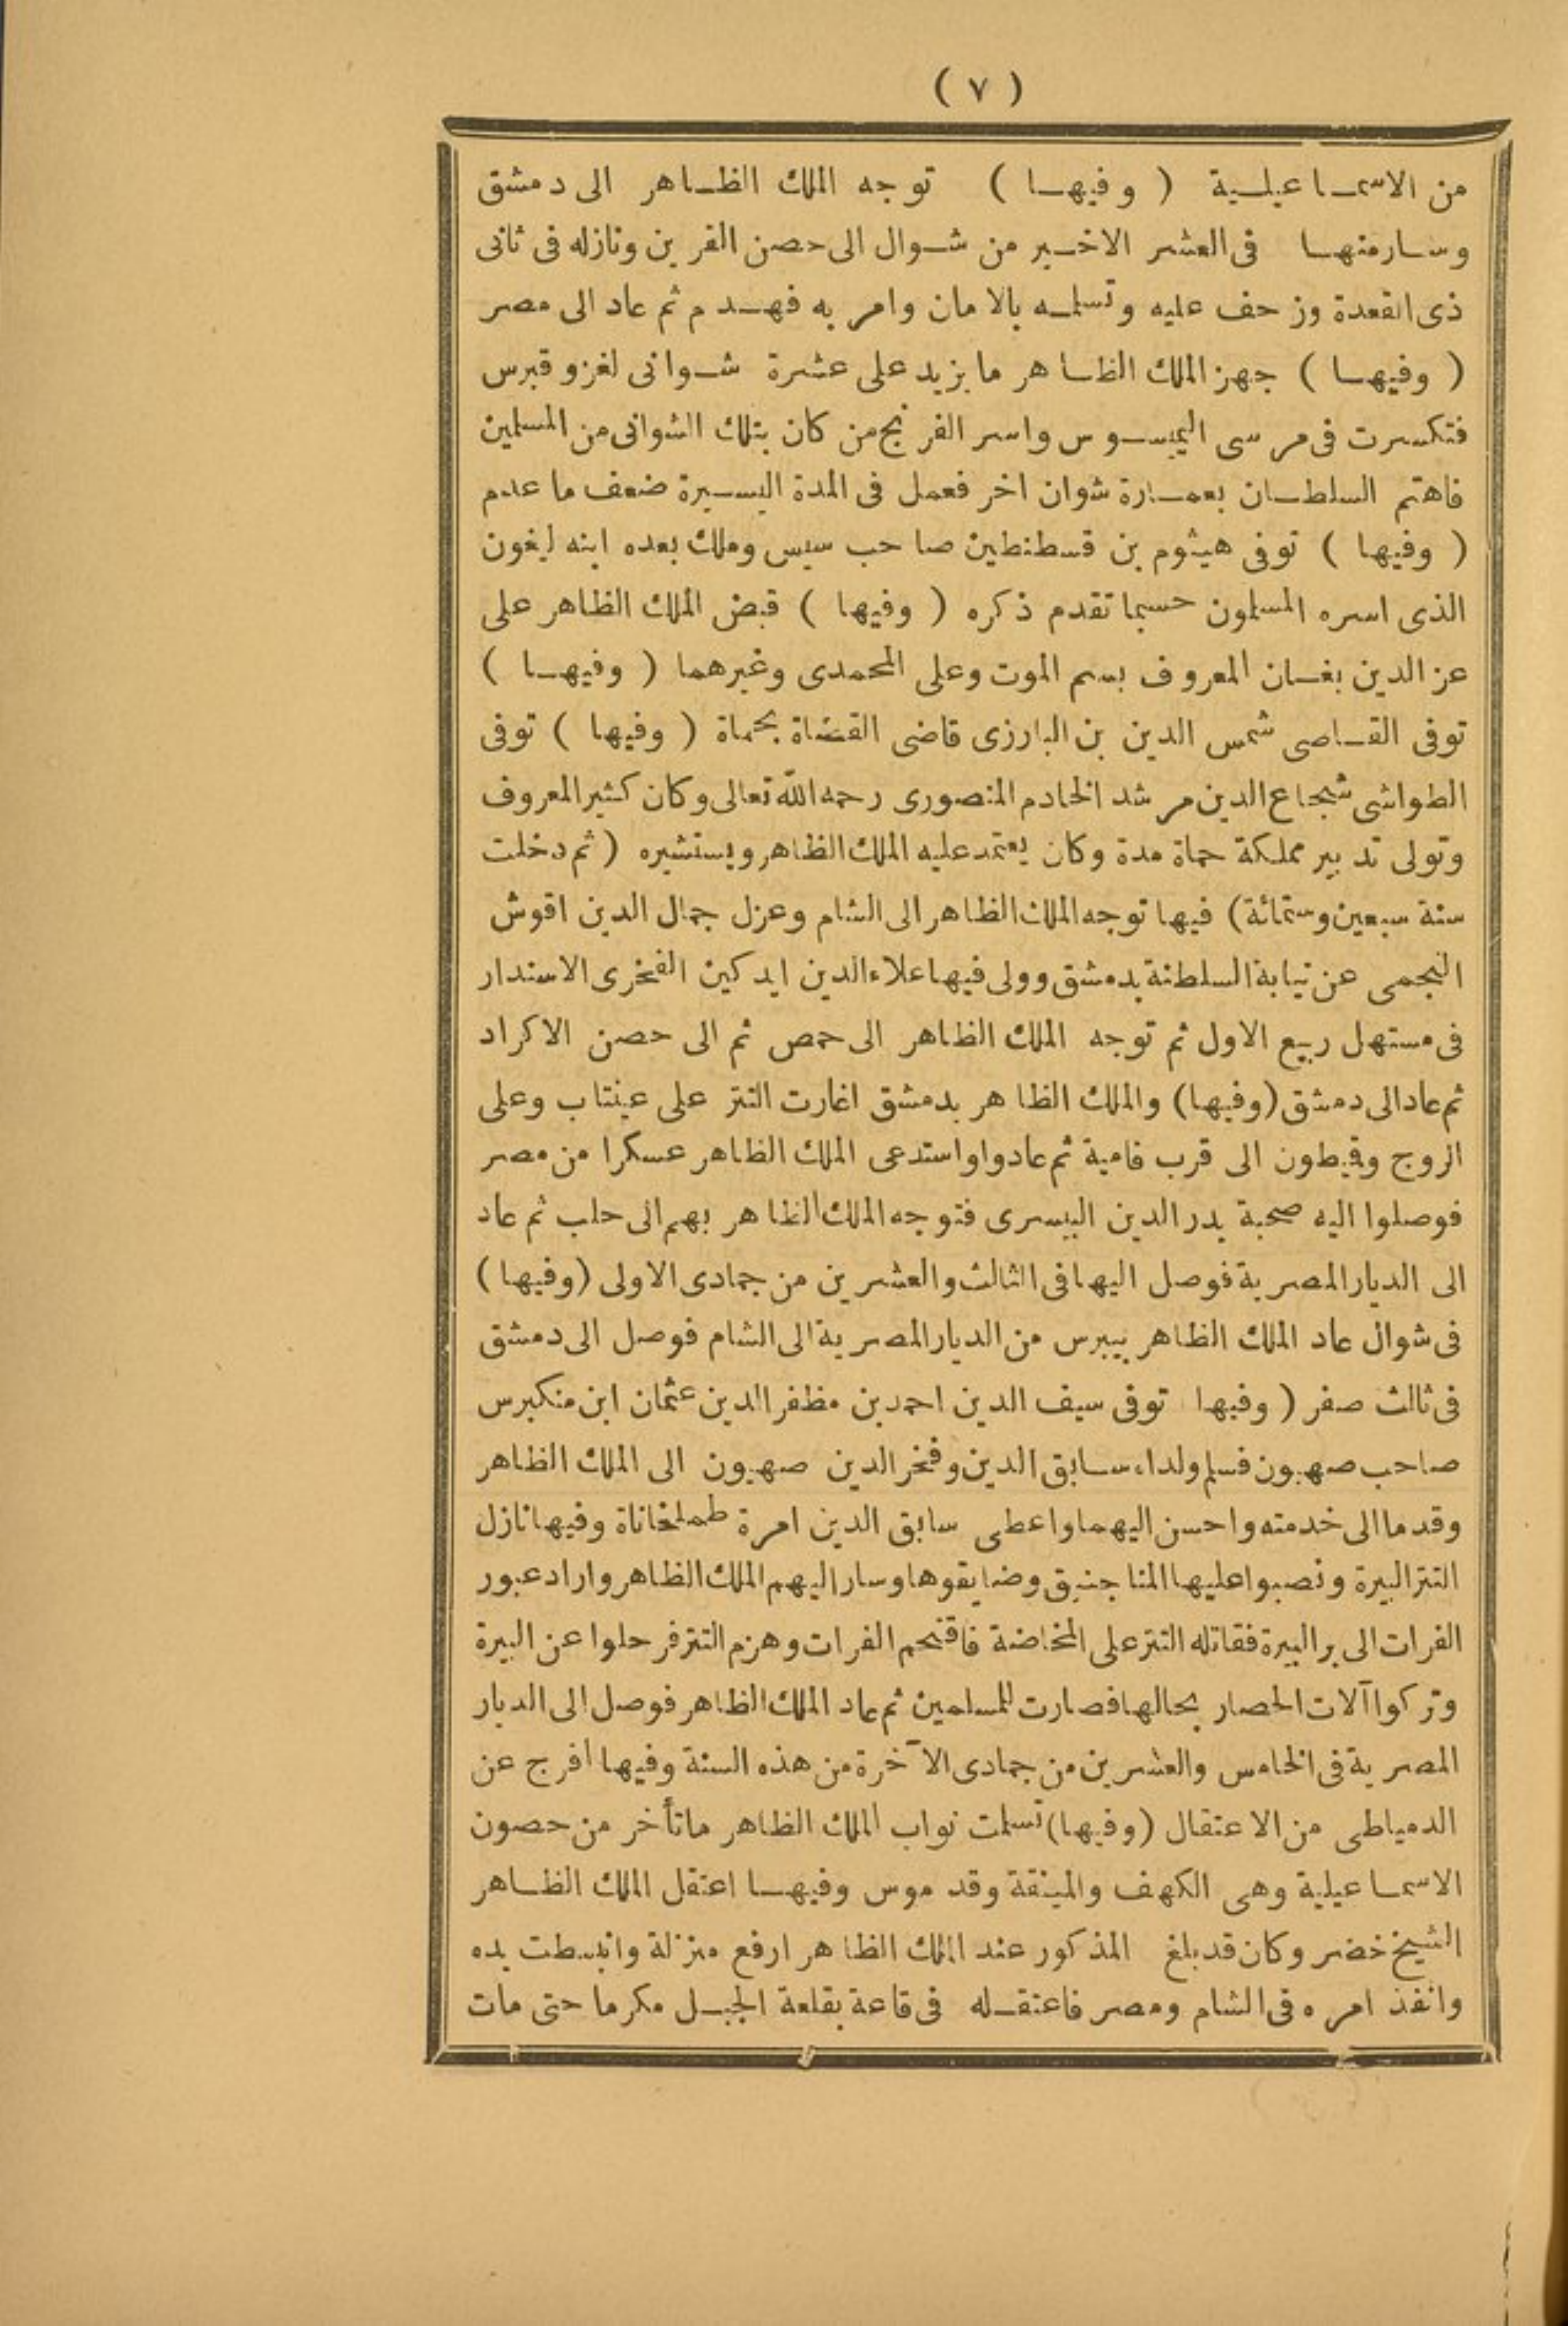 ( ٧ )
من الاسماعيلية ( وفيها ) توجه الملك الظاهر الى دمشق
وسار منها فى العشر الاخير من شوال الى حصن القرين ونازله فى ثانى
ذى القعدة وزحف عليه وتسلمه بالامان وامر به فهدم ثم عاد الى مصر
( وفيها ) جهز الملك الظاهر ما يزيد على عشرة شوانى لغزو قبرس
فتكسرت فى مرسى اليمسوس واسر الفرنج من كان بتلك الشوانى من المسلمين
فاهتم السلطان بعمارة شوان اخر فعمل فى المدة اليسيرة ضعف ما عدم
( وفيها ) توفى هيثوم بن قسطنطين صاحب سيس وملك بعده ابنه ليغون
الذى اسره المسلمون حسبما تقدم ذكره ( وفيها ) قبض الملك الظاهر على
عز الدين بغسان المعروف بسم الموت وعلى المحمدى وغيرهما ( وفيها )
توفى القاصى شمس الدين بن البارزى قاضى القضاة بحماة ( وفيها ) توفى
الطواشى شجاع الدين مرشد الخادم المنصورى رحمه الله تعالى وكان كثير المعروف
وتولى تدبير مملكة حماة مدة وكان يعتمد عليه الملك الظاهر ويستشيره ( ثم دخلت
سنة سبعين وستمائة) فيها توجه الملك الظاهر الى الشام وعزل جمال الدين اقوش
النجمى عن نيابة السلطنة بدمشق وولى فيها علاء الدين ايدكين الفخرى الاستدار
فى مستهل ربيع الاول ثم توجه الملك الظاهر الى حمص ثم الى حصن الاكراد
ثم عاد الى دمشق (وفيها) والملك الظاهر بدمشق اغارت التتر على عينتاب وعلى
الروج وقيطون الى قرب فامية ثم عادوا واستدعى الملك الظاهر عسكرا من مصر
فوصلوا اليه صحبة بدر الدين البيسرى فتوجه الملك الظاهر بهم الى حلب ثم عاد
الى الديار المصرية فوصل اليها فى الثالث والعشرين من جمادى الاولى (وفيها )
فى شوال عاد الملك الظاهر بيبرس من الديار المصرية الى الشام فوصل الى دمشق
فى ثالث صفر ( وفيها توفى سيف الدين احمد بن مظفر الدين عثمان ابن منكبرس
صاحب صهيون فسلم ولداه سابق الدين وفخر الدين صهيون الى الملك الظاهر
وقدما الى خدمته واحسن اليهما واعطى سابق الدين امرة طبلخاناة وفيها نازل
التتر البيرة ونصبوا عليها المناجنيق وضايقوها وسار اليهم الملك الظاهر واراد عبور
الفرات الى بر البيرة فقاتله التتر على المخاضة فاقتحم الفرات وهزم التتر فرحلوا عن البيرة
وتركوا آلات الحصار بحالها فصارت للمسلمين ثم عاد الملك الظاهر فوصل الى الديار
المصرية فى الخامس والعشرين من جمادى الآخرة من هذه السنة وفيها افرج عن
الدمياطى من الاعتقال (وفيها) تسلمت نواب الملك الظاهر ماتأخر من حصون
الاسماعيلية وهى الكهف والمينقة وقدموس وفيها اعتقل الملك الظاهر
الشيخ خضر وكان قد بلغ المذكور عند الملك الظاهر ارفع منزلة وانبسطت يده
وانفذ امره فى الشام ومصر فاعتقله فى قاعة بقلعة الجبل مكرما حتى مات